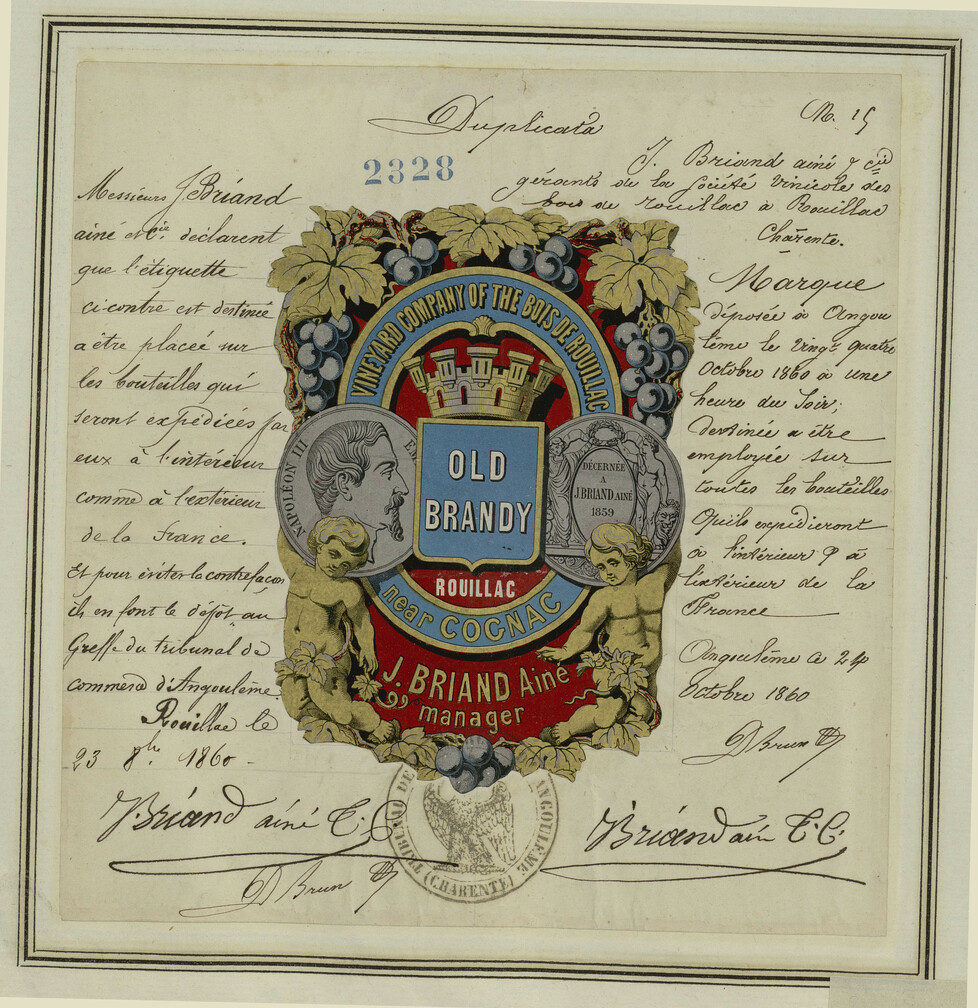 Duplicata
M. 15
2328
J. Briand ainé & cie
gérants de la Société Vinicole des
bois de rouillac à Rouillac
Charente.
Messieurs J Briand
ainé et Cie. déclarent
que l'étiquette
ci-contre est destinée
a être placée sur
les bouteilles qui
seront expédiées par
eux à l'intérieur
comme à l'extérieur
de la France.
Et pour éviter la contrefaçon
ils en font le dépôt au
Greffe du tribunal de
commerce d'Angoulême.
Rouillac le
23 8bre 1860
Briand ainé & C.
D Brun
VINEYARD COMPANY OF THE BOIS DE ROUILLAC
NAPOLÉON III
EM
OLD
BRANDY
DÉCERNÉE
A
J. BRIAND AINÉ
1859
ROUILLAC
near COGNAC
J. BRIAND Ainé
manager
TRIBUNAL DE
ANGOULÊME
(CHARENTE)
Marque
déposée à Angou
lême le vingt quatre
Octobre 1860 à une
heure du Soir;
destinée a être
employée sur
toutes les bouteilles
Qu'ils expédieront
à l'intérieur & à
l'extérieur de la
France
Angoulême ce 24
Octobre 1860
D Brun
Briand ainé & C.